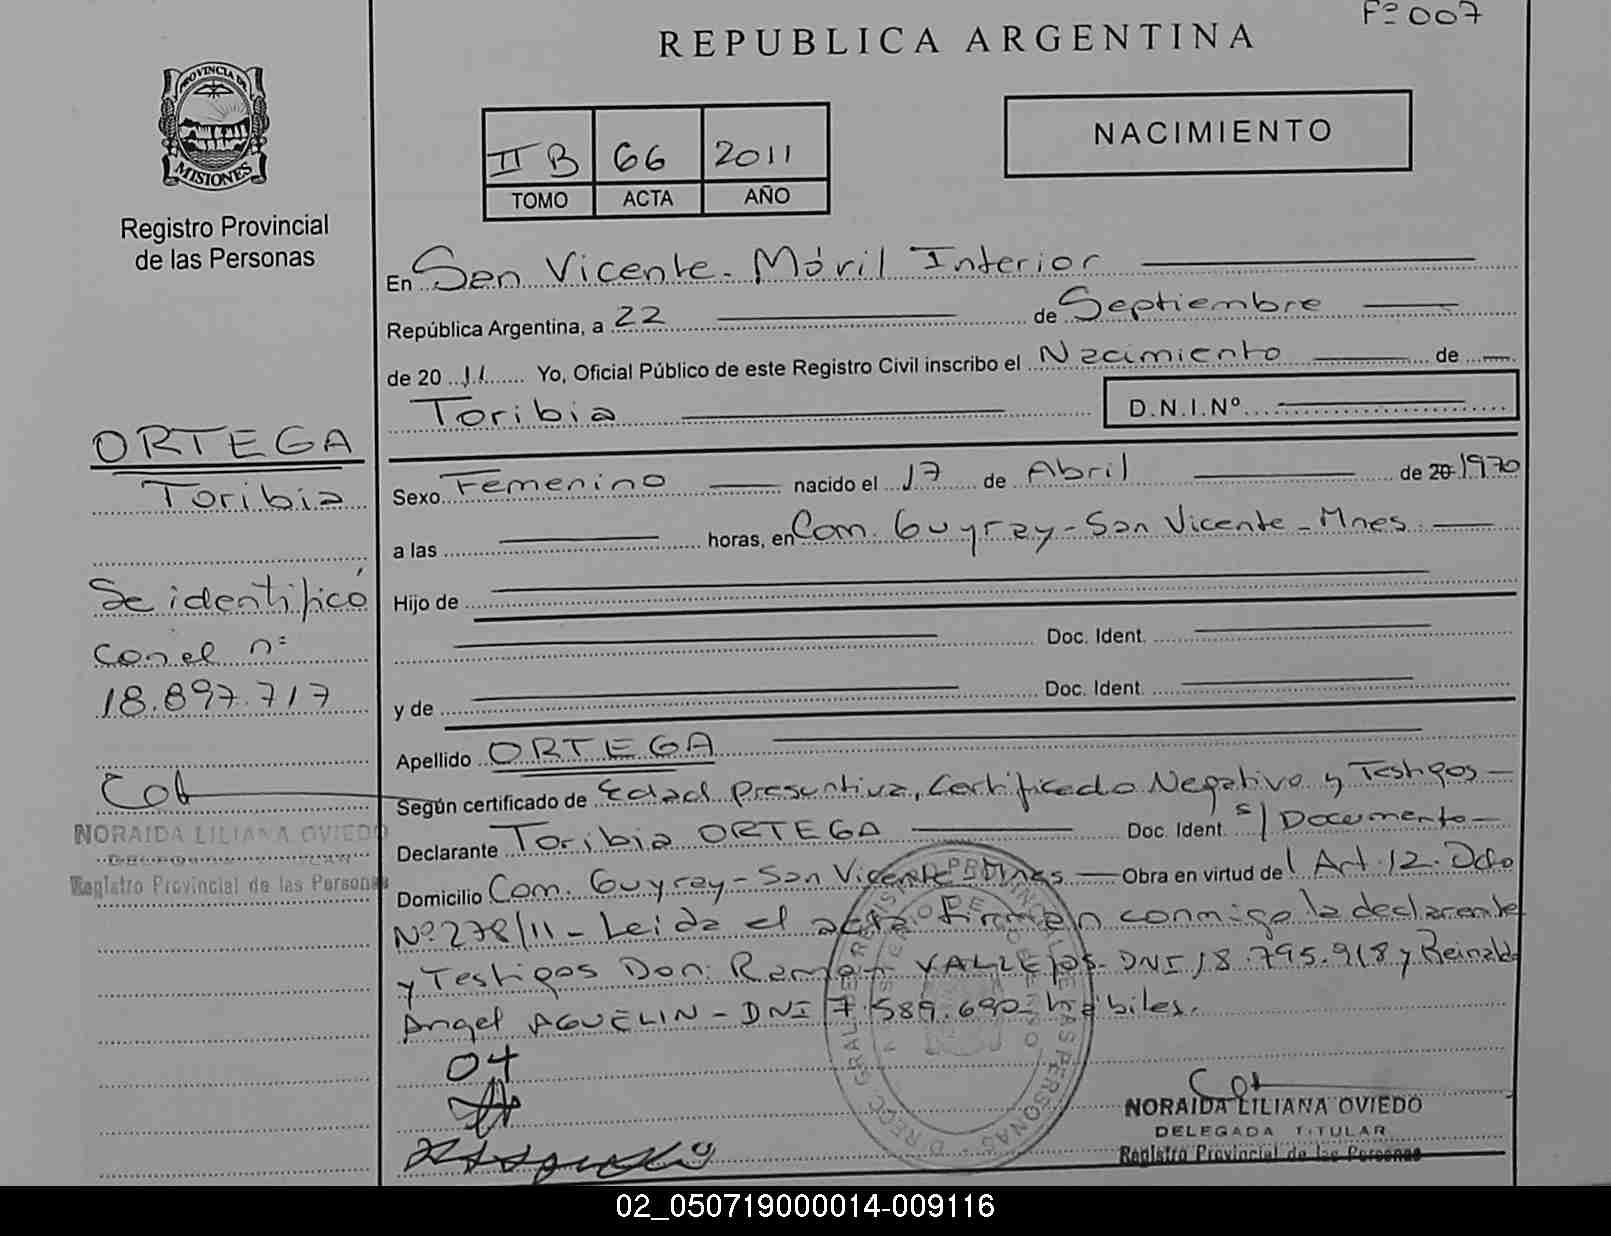 Fº 007
REPUBLICA ARGENTINA
PROVINCIA DE
MISIONES
Registro Provincial
de las Personas
II B 66 2011
TOMO ACTA AÑO
NACIMIENTO
En San Vicente - Móvil Interior
República Argentina, a 22 de Septiembre
de 20 11 Yo, Oficial Público de este Registro Civil inscribo el Nacimiento de
Toribia D.N.I.Nº
ORTEGA
Toribia
Sexo Femenino nacido el 17 de Abril de 20 1970
a las horas, en Com. Guyray - San Vicente - Mnes.
Se identificó
con el nº
18.897.717
Hijo de
Doc. Ident.
y de Doc. Ident.
Apellido ORTEGA
Según certificado de Edad presuntiva, Certificado Negativo y Testigos -
Declarante Toribia ORTEGA Doc. Ident. s/ Documento -
Domicilio Com. Guyray - San Vicente - Mnes - Obra en virtud del Art. 12. Dcto
Nº 278/11 - Leida el acta firman conmigo la declarante
y Testigos Don: Ramon VALLEJOS - DNI 18.795.918 y Reinaldo
Angel AGUELIN - DNI 7.589.690 - hábiles.
04
NORAIDA LILIANA OVIEDO
Registro Provincial de las Personas
NORAIDA LILIANA OVIEDO
DELEGADA TITULAR
Registro Provincial de las Personas
02_050719000014-009116